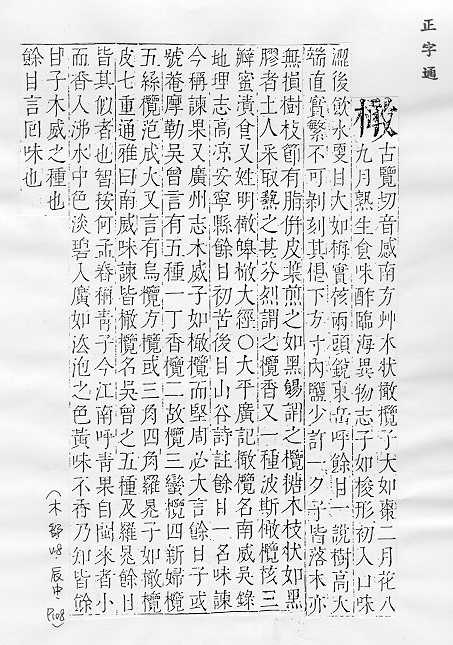 正字通
橄
古覽切音感南方艸木狀橄欖子大如棗二月花八
九月熟生食味酢臨海異物志子如梭形初入口味
澀後飲水更甘大如梅實核兩頭銳東岳呼餘甘一說樹高大
端直實繁不可剥刻其根下方寸內鹽少許一夕子皆落木亦
無損樹枝節有脂倂皮葉煎之如黑餳謂之欖糖木枝狀如黑
膠者土人采取爇之甚芬烈謂之欖香又一種波斯橄欖核三
瓣蜜漬食又姓明橄皞橄大徑〇太平廣記橄欖名南威吳錄
地理志高涼安寧縣餘甘初苦後甘山谷詩註餘甘一名味諫
今稱諫果又廣州志木威子如橄欖而堅周必大言餘甘子或
號菴摩勒吳曾言有五種一丁香欖二故欖三蠻欖四新婦欖
五絲欖泡成火又言有烏欖方欖或三角四角羅晃子如橄欖
皮七重通雅曰南威味諫皆橄欖名吳曾之五種及羅晃餘甘
皆其似者也智按何孟春稱靑子今江南呼靑果自閩來者小
而香入沸水中色淡碧入廣如泡之色黃味不香乃知皆餘
甘子木威之種也
餘甘言回味也
(木部 辰中 P108)